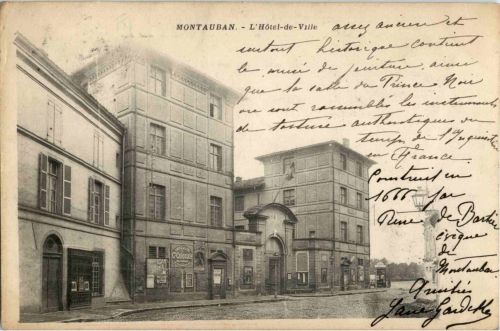 MONTAUBAN. - L'Hôtel-de-Ville
assez ancien et
surtout historique contient
le musée de peinture, ainsi
que la salle du Prince Noir
où sont rassemblés les instruments
de torture authentiques du
temps de l'Inquisition
en France.
Construit en
1666 par
René de
évêque
de
Montauban.
Amitiés